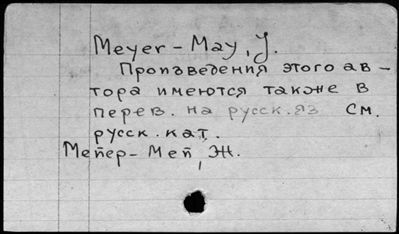 Meyer-May, J.
Произведения этого ав-
тора имеются также в
перев. на русск. яз См.
русск. кат.
Мейер-Мей, Ж.